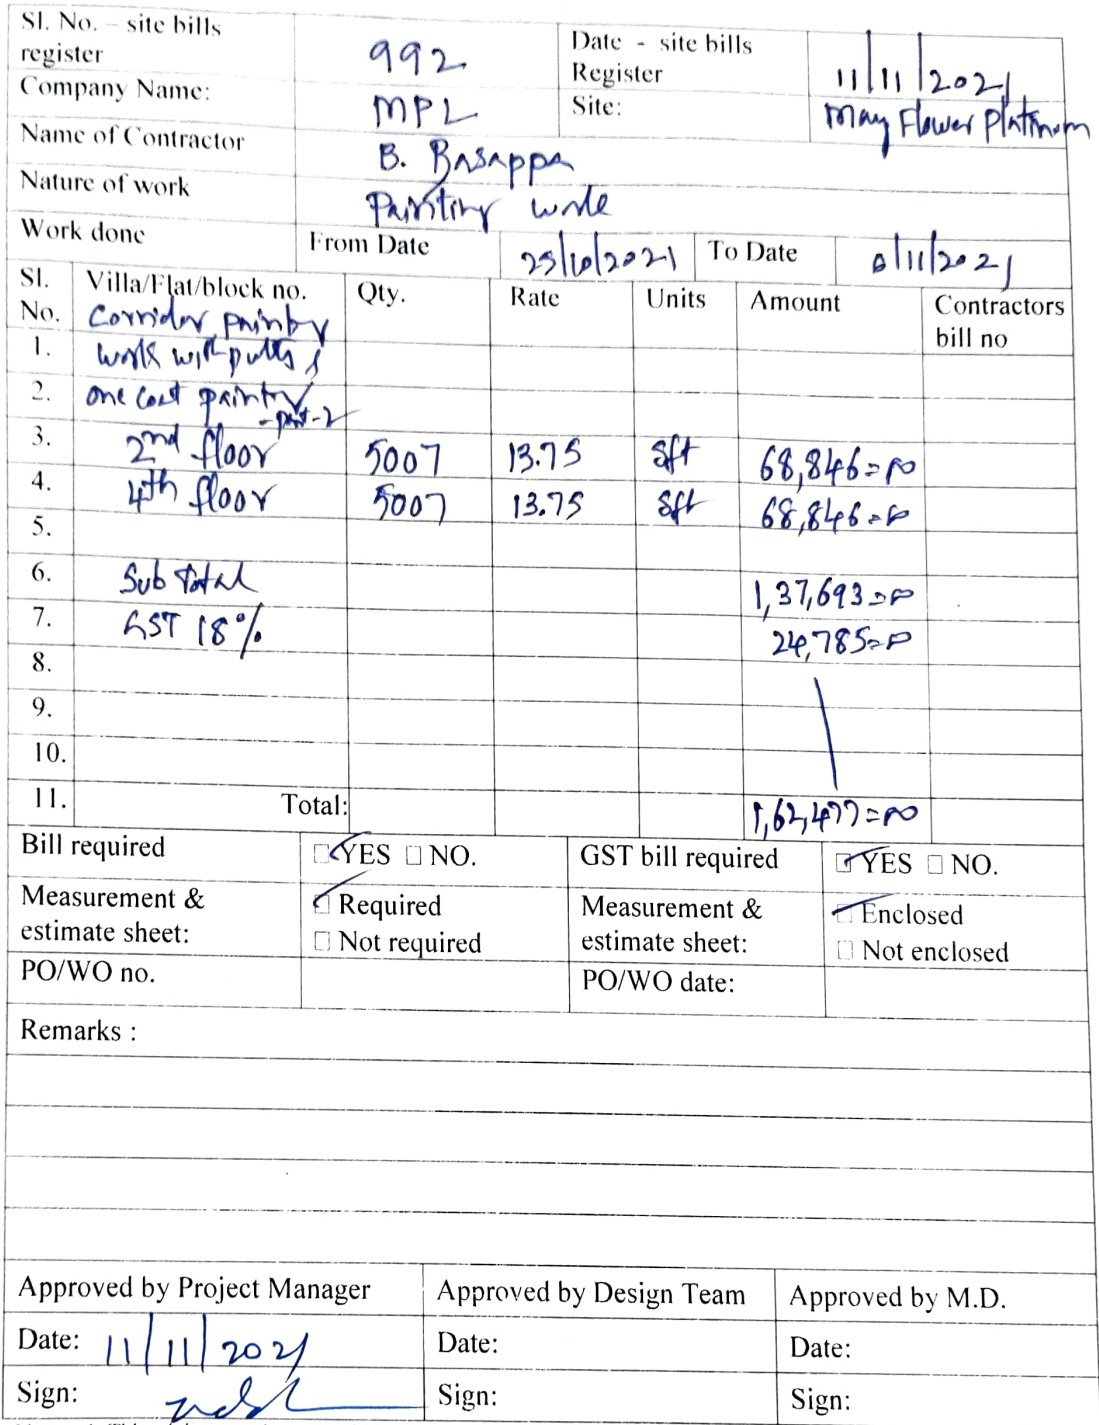 Sl. No. – site bills register 992 Date - site bills Register 11/11/2021
Company Name: MPL Site: May Flower Platinum
Name of Contractor B. Basappa
Nature of work Painting work
Work done From Date 25/10/2021 To Date 8/11/2021
Sl. No. Villa/Flat/block no. Qty. Rate Units Amount Contractors bill no
Corridor painting
1. work with putty &
2. one coat painting
- part-2
3. 2nd floor 5007 13.75 sft 68,846=00
4. 4th floor 5007 13.75 sft 68,846=00
5.
6. Sub Total 1,37,693=00
7. GST 18% 24,785=00
8.
9.
10.
11. Total: 1,62,477=00
Bill required YES NO. GST bill required YES NO.
Measurement & estimate sheet: Required Measurement & estimate sheet: Enclosed
Not required Not enclosed
PO/WO no. PO/WO date:
Remarks :
Approved by Project Manager Approved by Design Team Approved by M.D.
Date: 11/11/2021 Date: Date:
Sign: Sign: Sign: